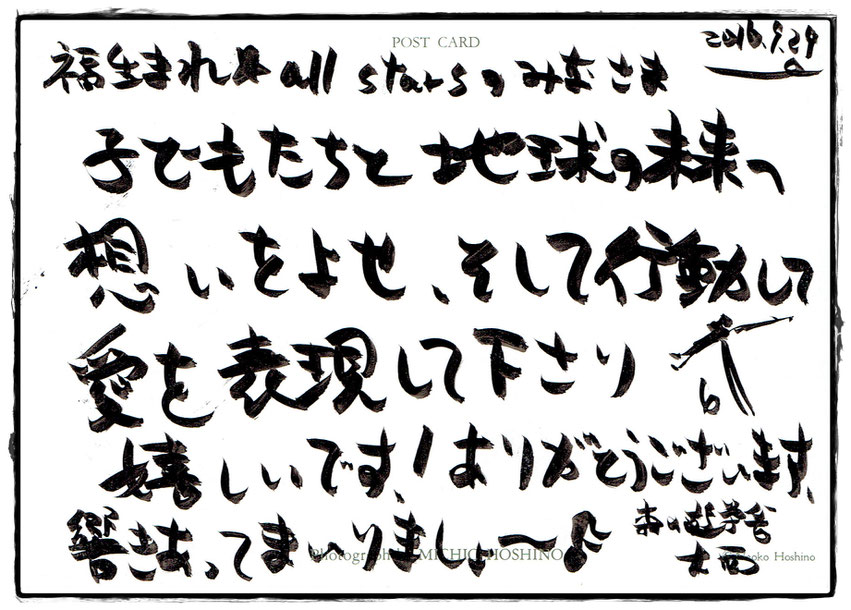 POST CARD
2016.9.29
福生まれ all starsのみなさま
子どもたちと地球の未来へ
想いをよせ、そして行動して
愛を表現して下さり
嬉しいです!ありがとうございます、
響きあってまいりましょ〜♪
森の遊学舎
大西
Photograph MICHIO HOSHINO
oko Hoshino